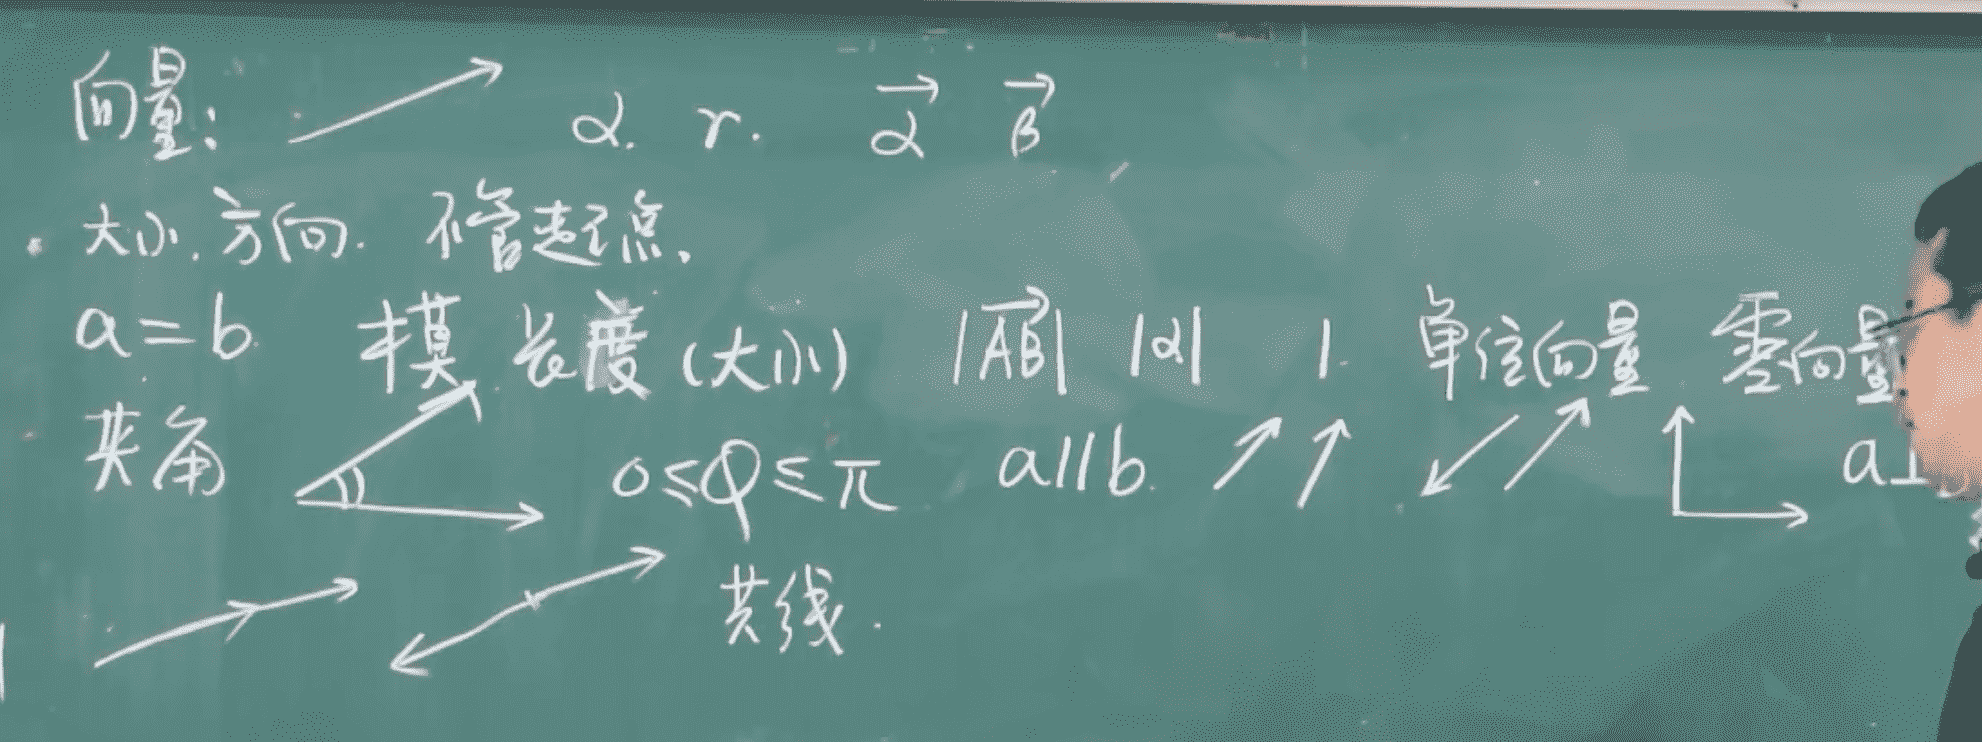 向量: α. r. α⃗ β⃗
· 大小.方向. 不管起点.
a=b. 模 长度(大小) |A⃗B⃗| |α| 1. 单位向量 零向量
夹角 0≤φ≤π a//b. a⊥
共线.